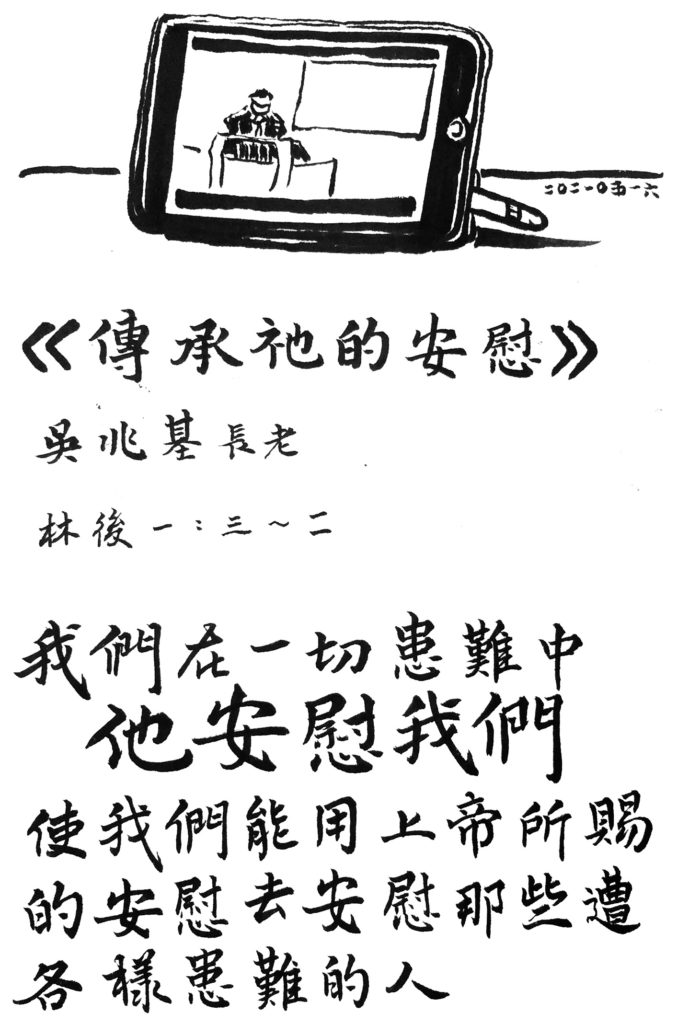 二〇二一〇五一六
《傳承祂的安慰》
吳兆基長老
林後一：三～二
我們在一切患難中
他安慰我們
使我們能用上帝所賜
的安慰去安慰那些遭
各樣患難的人